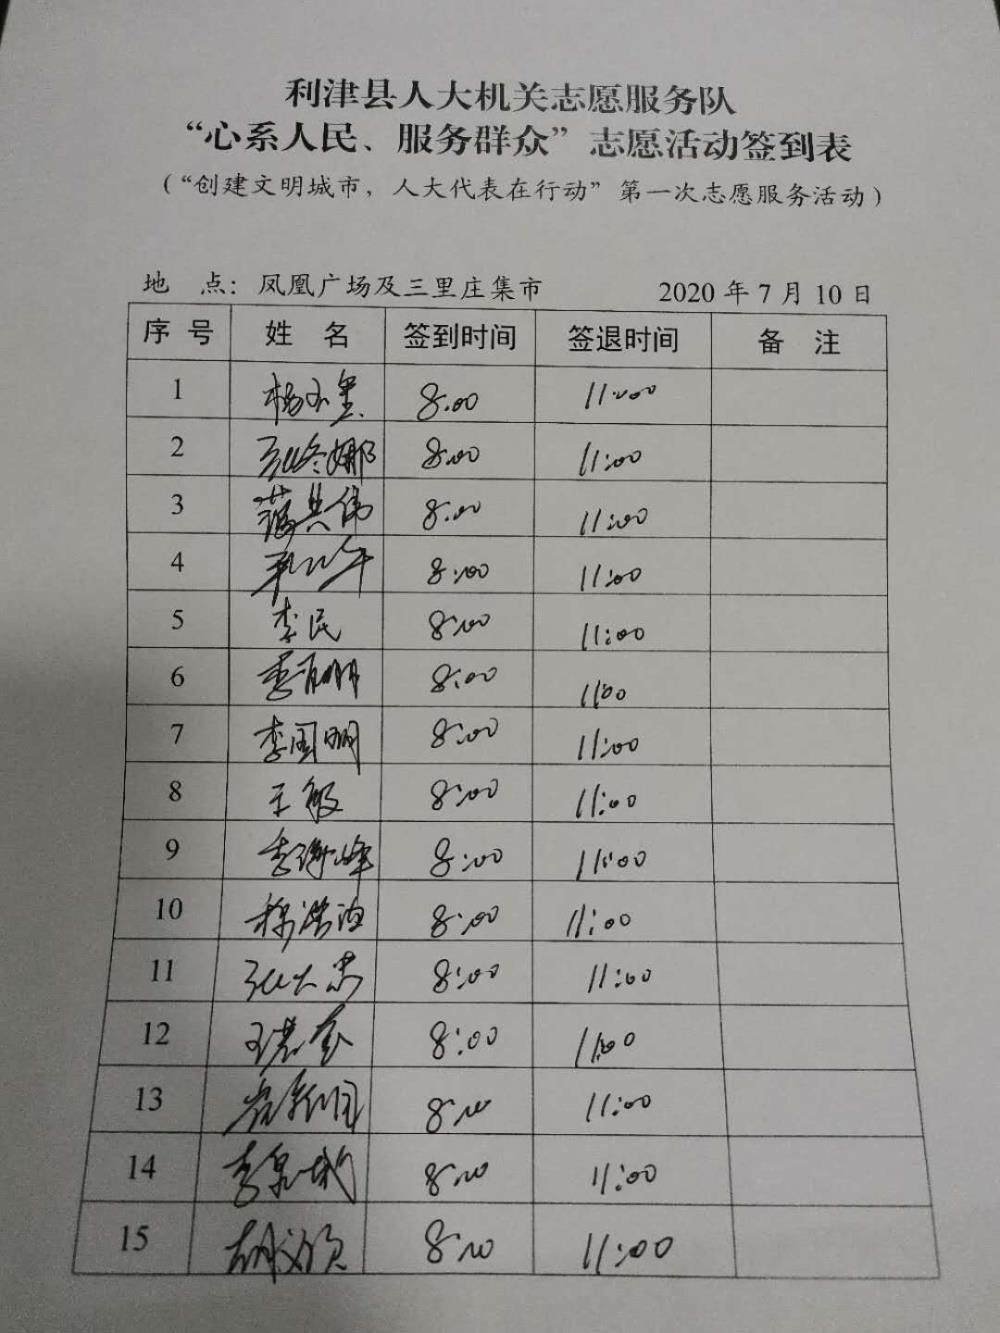 利津县人大机关志愿服务队
“心系人民、服务群众”志愿活动签到表
（“创建文明城市，人大代表在行动”第一次志愿服务活动）
地 点：凤凰广场及三里庄集市 2020年7月10日
序号 姓名 签到时间 签退时间 备注
1 8:00 11:00
2 张冬娜 8:00 11:00
3 8:00 11:00
4 8:00 11:00
5 李民 8:00 11:00
6 8:00 11:00
7 李国明 8:00 11:00
8 王敏 8:00 11:00
9 8:00 11:00
10 8:00 11:00
11 8:00 11:00
12 8:00 11:00
13 8:00 11:00
14 8:00 11:00
15 8:00 11:00